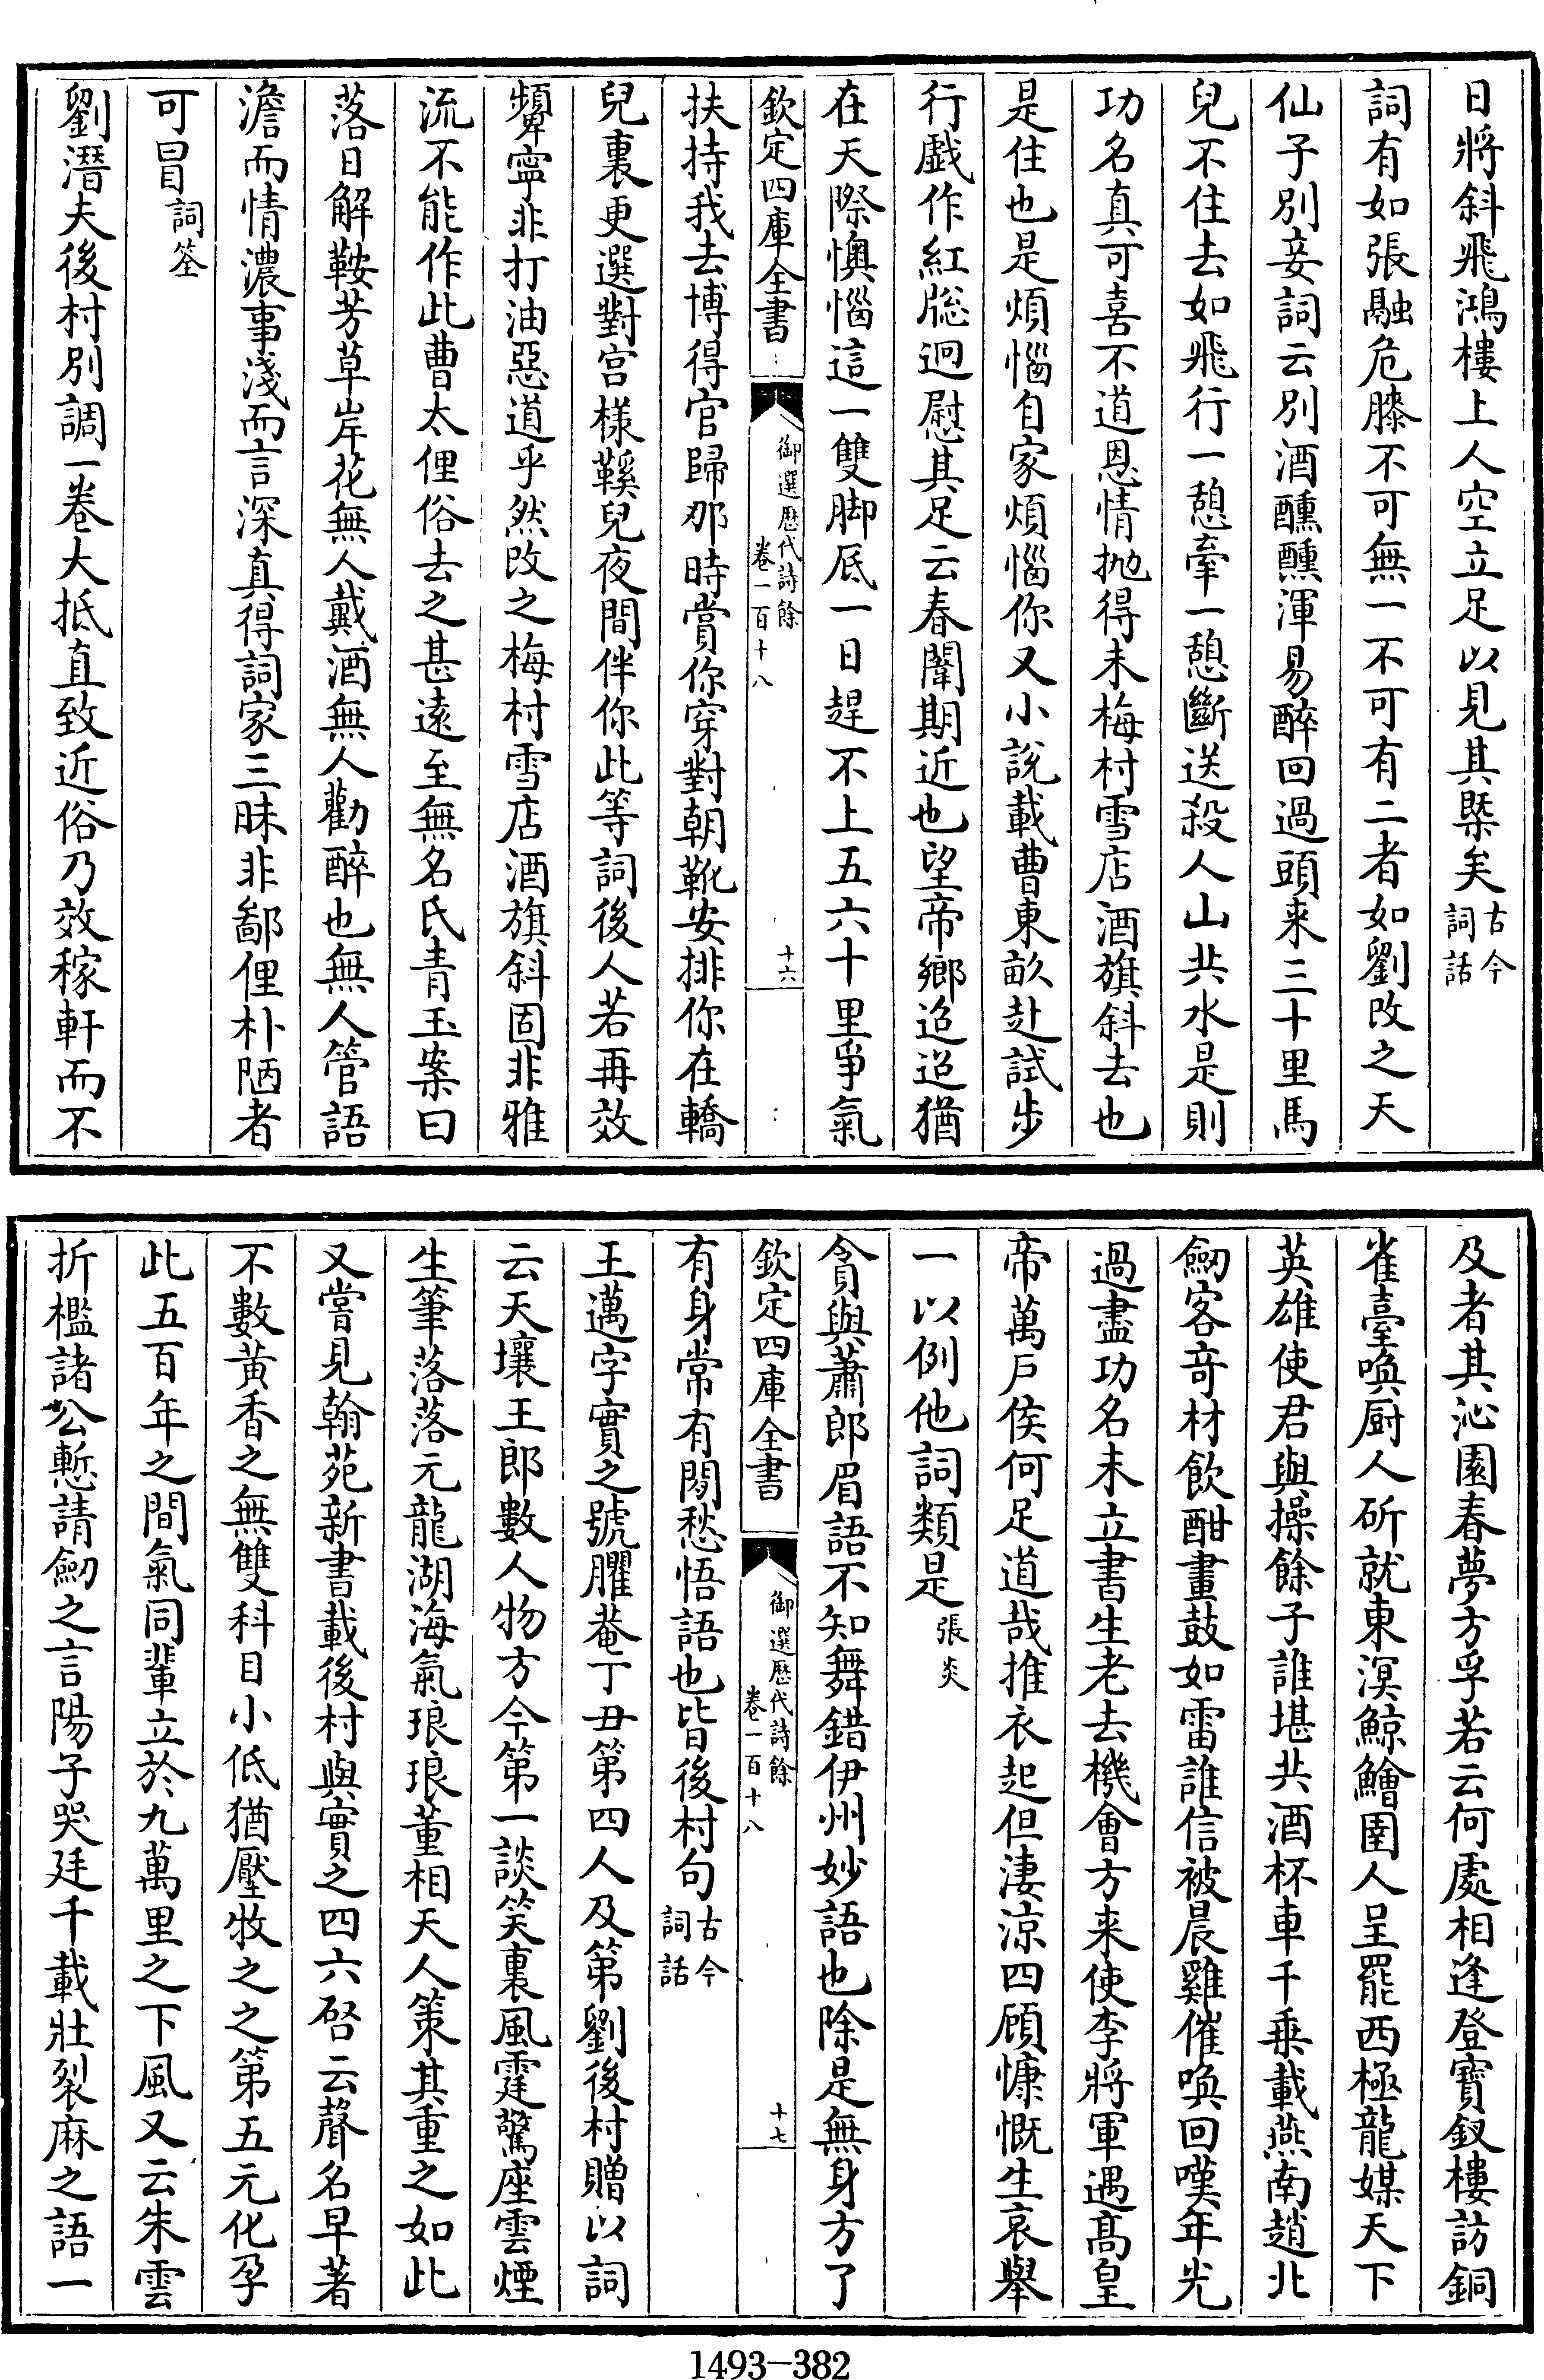 日將斜飛鴻樓上人空立足以見其槩矣古今詞話
詞有如張融危膝不可無一不可有二者如劉改之天
仙子別妾詞云別酒醺醺渾易醉回過頭来三十里馬
兒不住去如飛行一憩牽一憩斷送殺人山共水是則
功名真可喜不道恩情拋得未梅村雪店酒旗斜去也
是住也是煩惱自家煩惱你又小說載曹東畝赴試步
行戲作紅牎迥慰其足云春闈期近也望帝鄉迢迢猶
在天際懊惱這一雙脚底一日趕不上五六十里爭氣
欽定四庫全書
御選歷代詩餘
卷一百十八
十六
扶持我去博得官歸那時賞你穿對朝靴安排你在轎
兒裏更選對宫樣鞵兒夜間伴你此等詞後人若再效
顰寧非打油惡道乎然改之梅村雪店酒旗斜固非雅
流不能作此曹太俚俗去之甚遠至無名氏青玉案曰
落日解鞍芳草岸花無人戴酒無人勸醉也無人管語
澹而情濃事淺而言深真得詞家三昧非鄙俚朴陋者
可冒詞筌
劉潛夫後村別調一卷大抵直致近俗乃效稼軒而不
及者其沁園春夢方孚若云何處相逢登寶釵樓訪銅
雀臺喚厨人斫就東溟鯨鱠圉人呈罷西極龍媒天下
英雄使君與操餘子誰堪共酒杯車千乘載燕南趙北
劒客奇材飲酣畫鼓如雷誰信被晨雞催喚回嘆年光
過盡功名未立書生老去機會方来使李將軍遇高皇
帝萬戶侯何足道哉推衣起但淒涼四顧慷慨生哀舉
一以例他詞類是張炎
貪與蕭郎眉語不知舞錯伊州妙語也除是無身方了
欽定四庫全書
御選歷代詩餘
卷一百十八
十七
有身常有閒愁悟語也皆後村句古今詞話
王邁字實之號臞菴丁丑第四人及第劉後村贈以詞
云天壤王郎數人物方今第一談笑裏風霆驚座雲煙
生筆落落元龍湖海氣琅琅董相天人策其重之如此
又嘗見翰苑新書載後村與實之四六啓云聲名早著
不數黃香之無雙科目小低猶壓牧之之第五元化孕
此五百年之間氣同輩立於九萬里之下風又云朱雲
折檻諸公慙請劒之言陽子哭廷千載壯裂麻之語一
1493—382